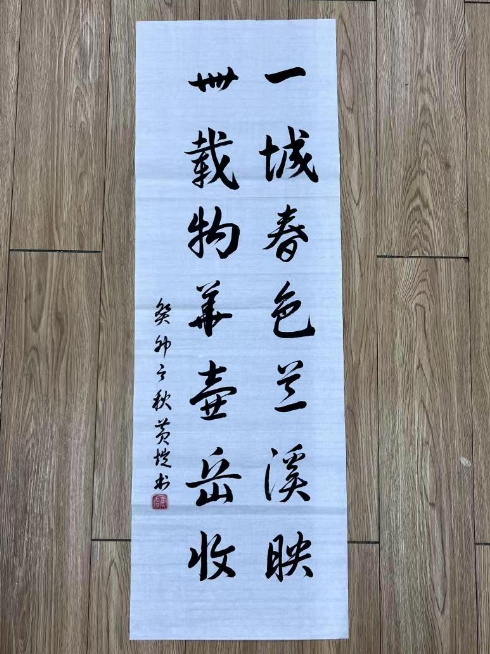 一城春色兰溪映
卌载物华壶岳收
癸卯之秋黄书